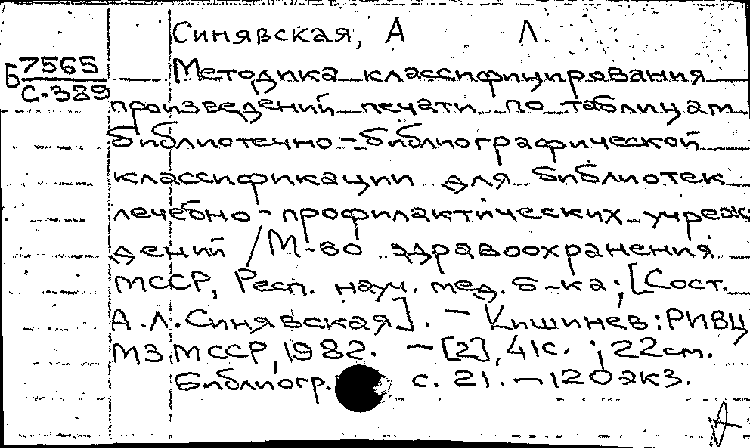 Синявская, А Л.
Б 7565
С.389
Методика классифицирования
произведений печати по таблицам
библиотечно-библиографической
классификации для библиотек
лечебно-профилактических учреж
дений / М-во здравоохранения
МССР, Респ. науч. мед. б-ка; [Сост.
А.Л.Синявская]. — Кишинев: РИВЦ
МЗ МССР, 1982. — [2], 41с. ; 22см.
Библиогр. с. 21. — 120экз.